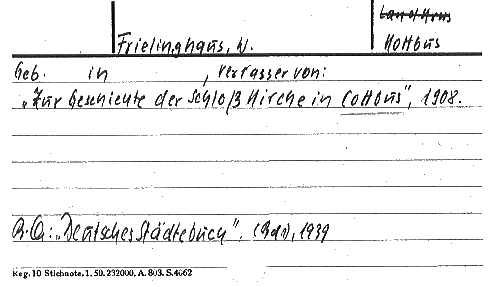 Frielinghaus, W.
Kottbus
Geb. in , Verfasser von:
"Zur Geschichte der Schloßkirche in Cottbus", 1908.
B.Q.: "Deutsches Städtebuch". 1939
Keg. 10 Stichnote. 1. 50. 232000, A. 803. S. 4662